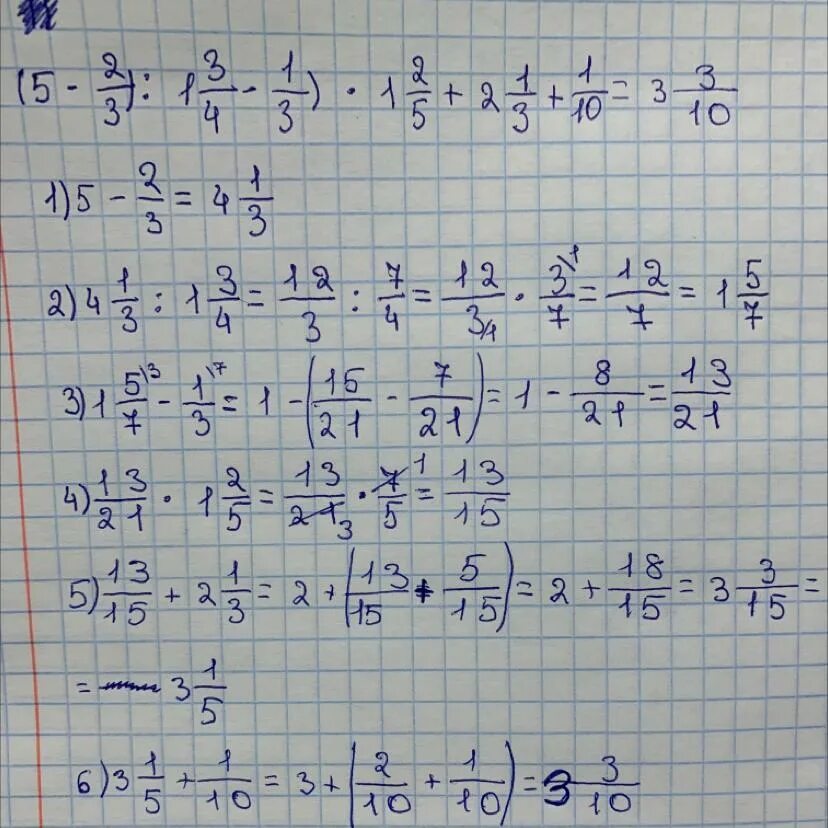 (5 - 2/3) : 1 3/4 - 1/3) · 1 2/5 + 2 1/3 + 1/10 = 3 3/10
1) 5 - 2/3 = 4 1/3
2) 4 1/3 : 1 3/4 = 12/3 : 7/4 = 12/3 4 · 3\1/7 = 12/7 = 1 5/7
3) 1 5\3/7 - 1\7/3 = 1 - (15/21 - 7/21) = 1 - 8/21 = 13/21
4) 13/21 · 1 2/5 = 13/21 3 · 7 1/5 = 13/15
5) 13/15 + 2 1/3 = 2 + (13/15 + 5/15) = 2 + 18/15 = 3 3/15 =
= 3 1/5
6) 3 1/5 + 1/10 = 3 + (2/10 + 1/10) = 3 3/10